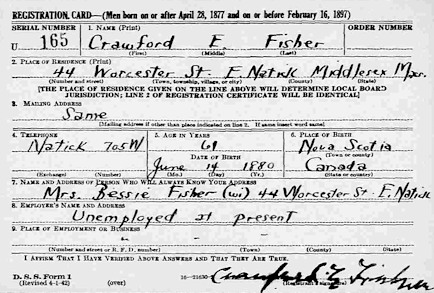 REGISTRATION CARD—(Men born on or after April 28, 1877 and on or before February 16, 1897)
SERIAL NUMBER 1. NAME (Print) ORDER NUMBER
U 165 Crawford E. Fisher
(First) (Middle) (Last)
2. PLACE OF RESIDENCE (Print)
44 Worcester St. E. Natick Middlesex Mass.
(Number and street) (Town, township, village, or city) (County) (State)
[THE PLACE OF RESIDENCE GIVEN ON THE LINE ABOVE WILL DETERMINE LOCAL BOARD
JURISDICTION; LINE 2 OF REGISTRATION CERTIFICATE WILL BE IDENTICAL]
3. MAILING ADDRESS
Same
[Mailing address if other than place indicated on line 2. If same insert word same]
4. TELEPHONE 5. AGE IN YEARS 6. PLACE OF BIRTH
Natick 705W 61 Nova Scotia
DATE OF BIRTH (Town or county)
June 14 1880 Canada
(Exchange) (Number) (Mo.) (Day) (Yr.) (State or country)
7. NAME AND ADDRESS OF PERSON WHO WILL ALWAYS KNOW YOUR ADDRESS
Mrs. Bessie Fisher (wi) 44 Worcester St. E. Natick
8. EMPLOYER'S NAME AND ADDRESS
Unemployed at present
9. PLACE OF EMPLOYMENT OR BUSINESS
- - -
(Number and street or R. F. D. number) (Town) (County) (State)
I AFFIRM THAT I HAVE VERIFIED ABOVE ANSWERS AND THAT THEY ARE TRUE.
D. S. S. Form 1
(Revised 4-1-42) (over) 16—21630-2 Crawford E. Fisher
(Registrant's signature)